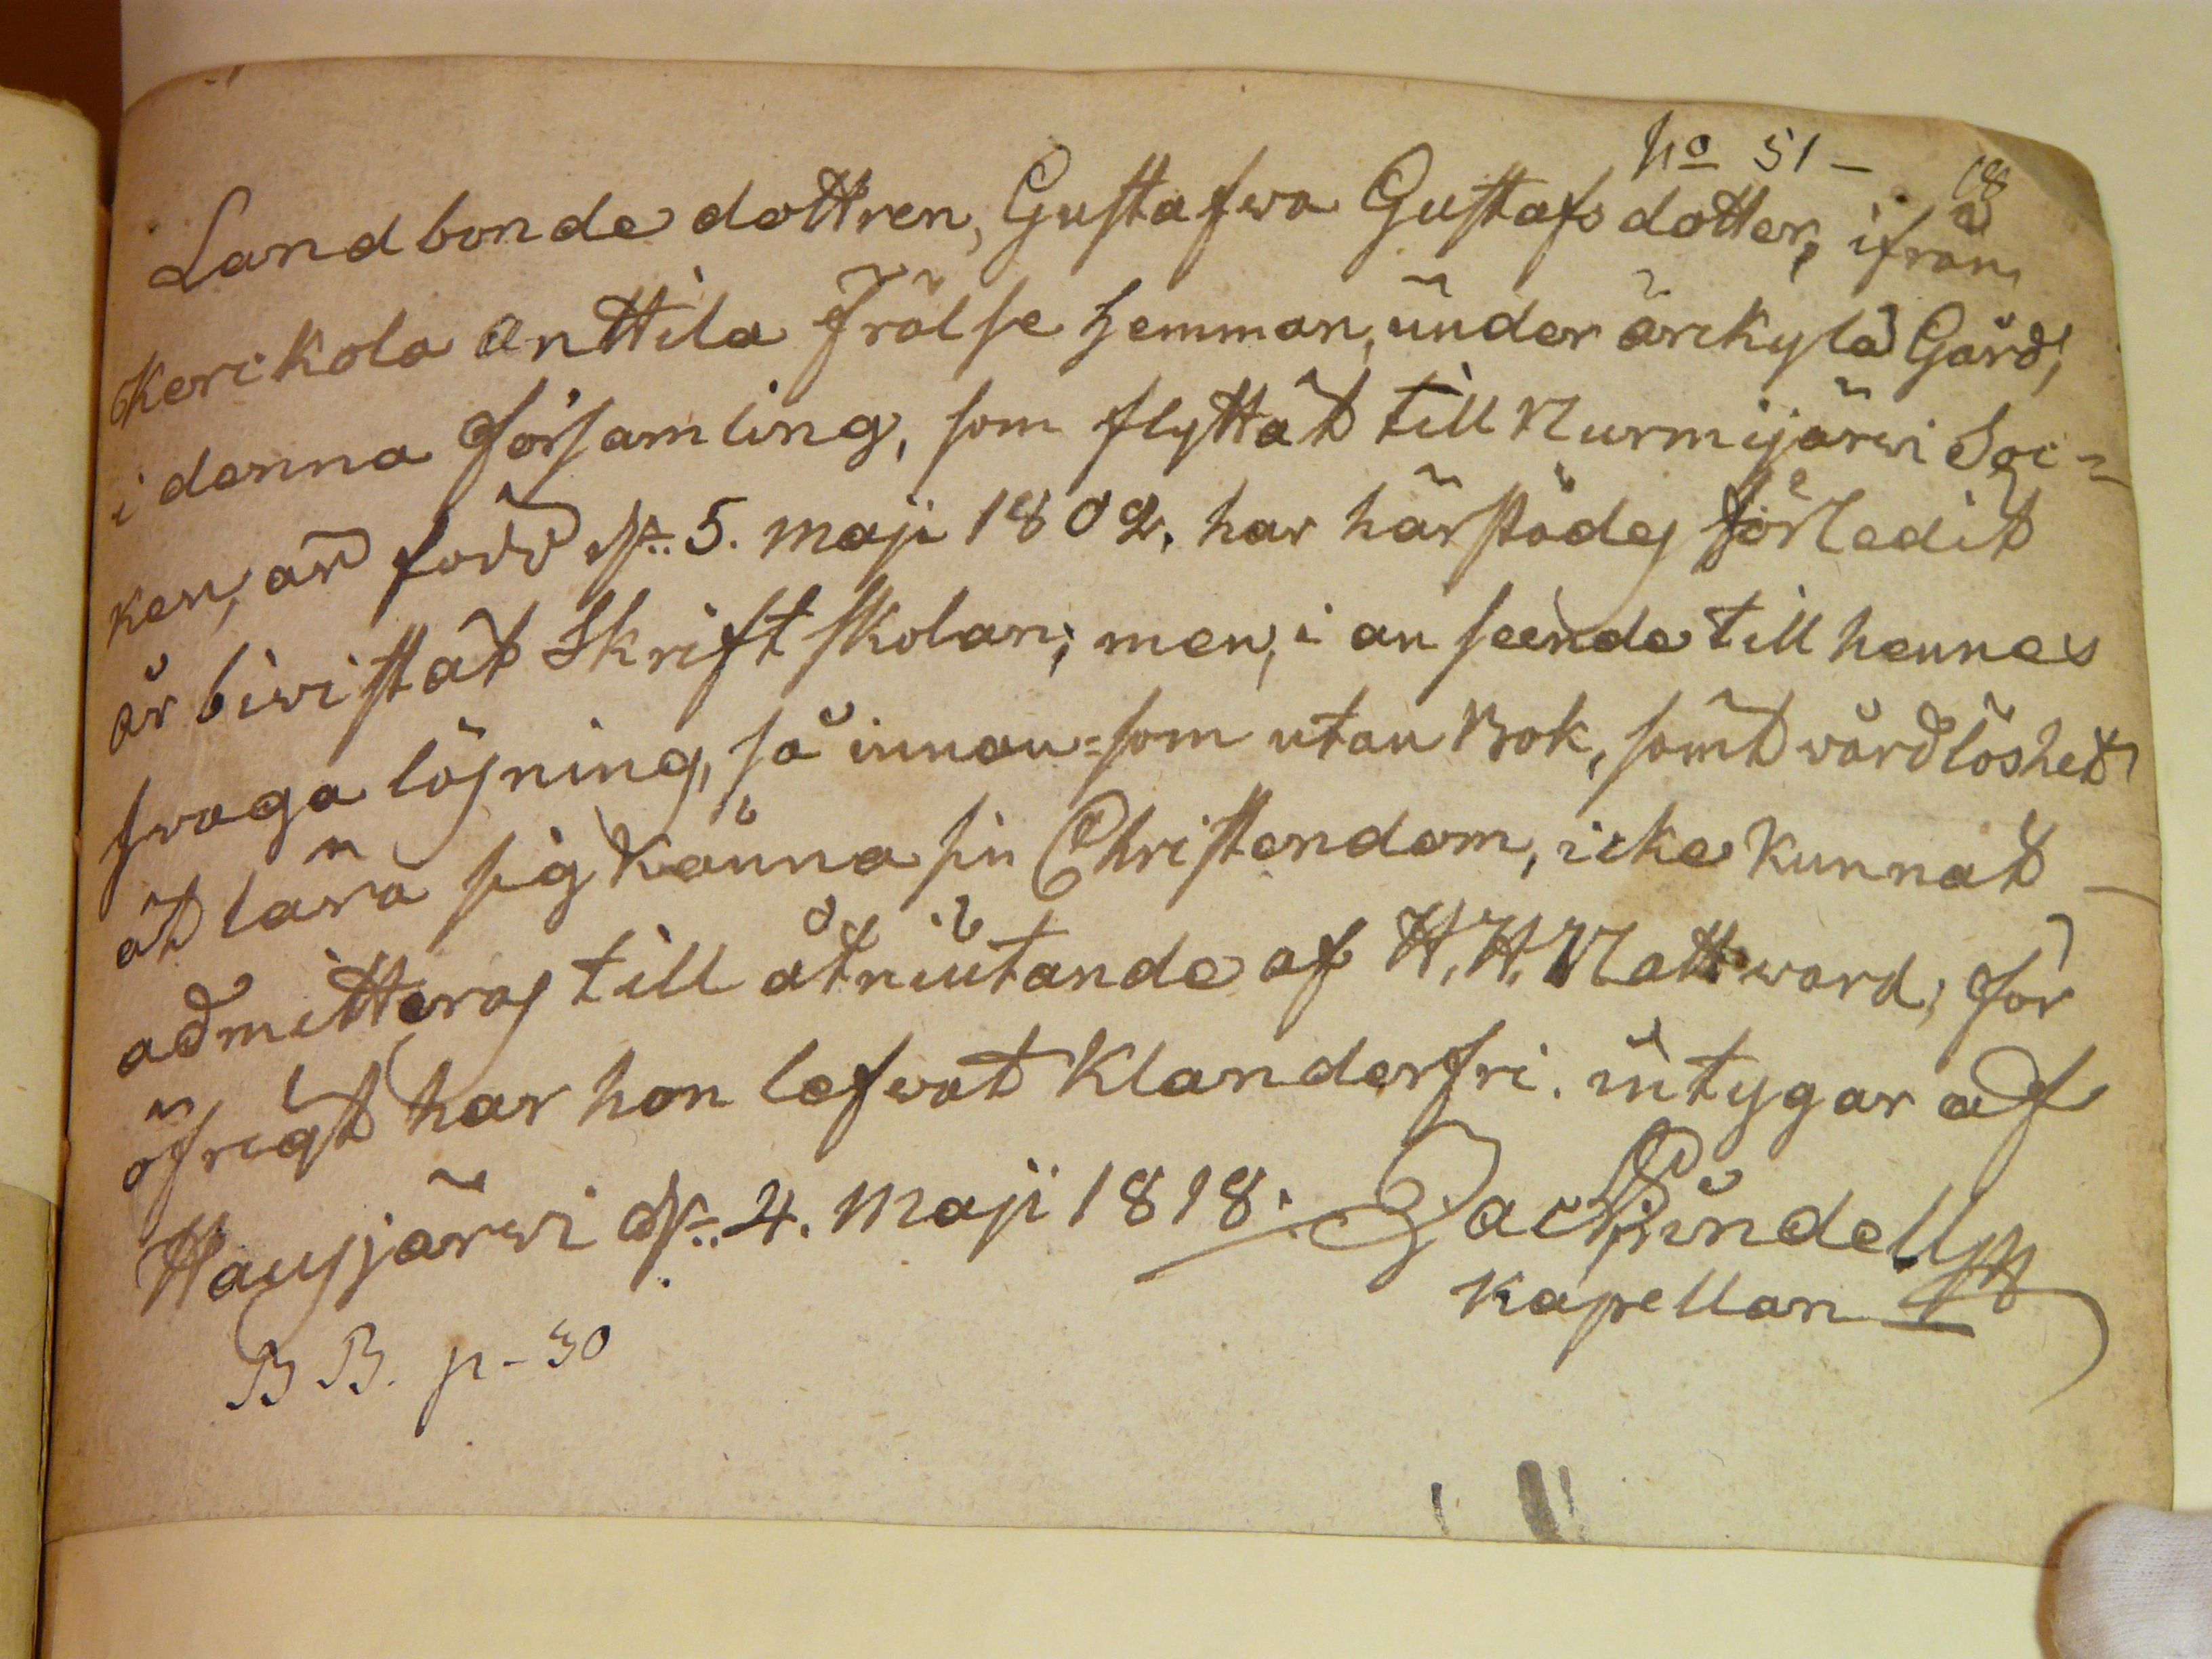 No 51 –
18
Landbonde dottren, Gustafwa Gustafs dotter, ifrån
Kerikola Anttila Frälse hemman, under ärikylä Gård,
i denna församling, som flyttat till Nurmijärwi Soc=
ken, är född d. 5. Maji 1802, har härstädes förledit
år biwistat Skriftskolan; men, i anseende till hennes
swaga läsning, så innan=som utan Bok, samt wårdlöshet
at lära sig känna sin Christendom, icke kunnat –
admitteras till åtniutande af H. H. Nattward; för
öfrigt har hon lefwat klanderfri. intygar af
Hausjärwi d. 4. Maji 1818.
Kapellan
B B. p – 30